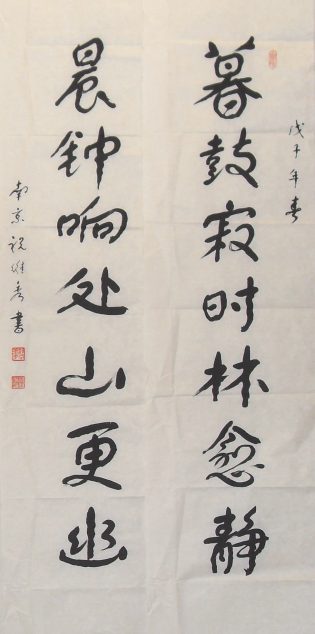 戊子年春
暮鼓寂时林愈静
晨钟响处山更幽
南京祝維秀書